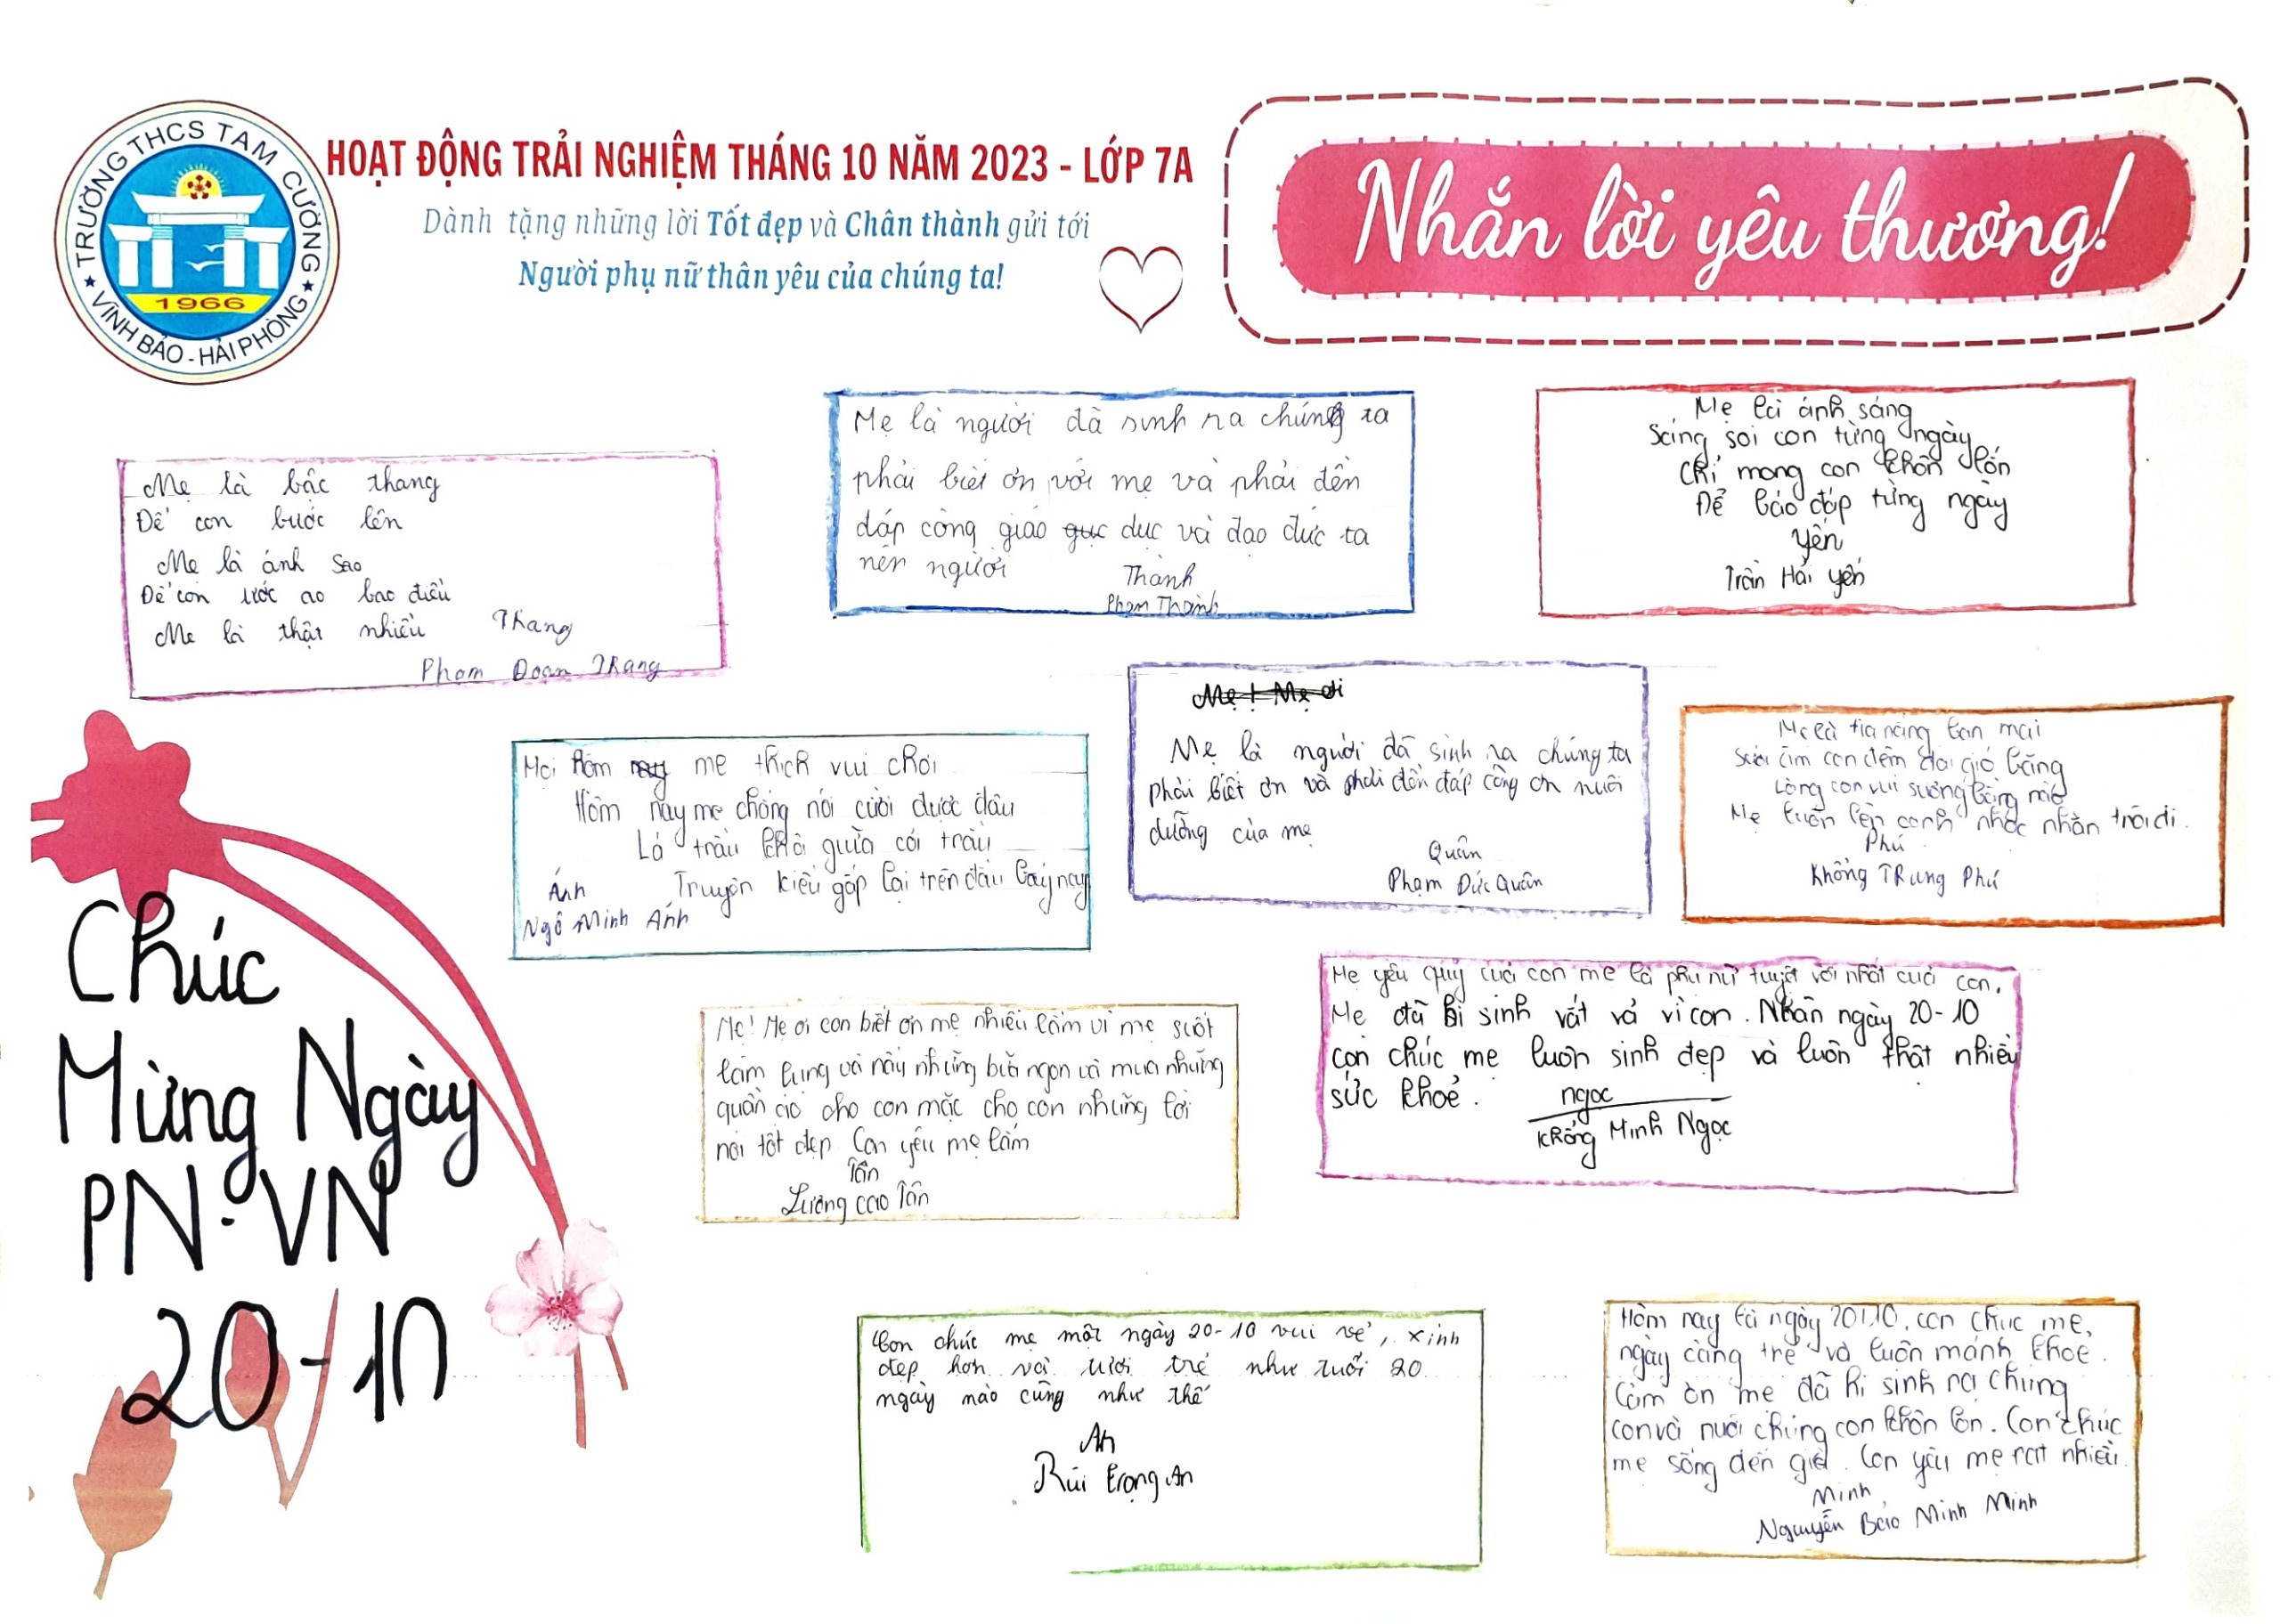 TRƯỜNG THCS TAM CƯỜNG
1966
VĨNH BẢO - HẢI PHÒNG
HOẠT ĐỘNG TRẢI NGHIỆM THÁNG 10 NĂM 2023 - LỚP 7A
Dành tặng những lời Tốt đẹp và Chân thành gửi tới
Người phụ nữ thân yêu của chúng ta!
Nhắn lời yêu thương!
Mẹ là bậc thang
Để con bước lên
Mẹ là ánh sao
Để con ước ao bao điều
Mẹ là thật nhiều
Thang
Phạm Đoan Thang
Mẹ là người đã sinh ra chúng ta
phải biết ơn với mẹ và phải đền
đáp công giáo dục và đạo đức ta
nên người
Thành
Phạm Thành
Mẹ là ánh sáng
Sáng soi con từng ngày
Chỉ mong con khôn lớn
Để báo đáp từng ngày
Yến
Trần Hải Yến
Mọi hôm mẹ thích vui chơi
Hôm nay mẹ chẳng nói cười được đâu
Lá trầu khô giữa cơi trầu
Truyện kiều gấp lại trên đầu bấy nay
Ánh
Ngô Minh Ánh
Mẹ ! Mẹ ơi
Mẹ là người đã sinh ra chúng ta
phải biết ơn và phải đền đáp công ơn nuôi
dưỡng của mẹ
Quân
Phạm Đức Quân
Mẹ là tia nắng ban mai
Sưởi ấm con đêm dài gió băng
Lòng con vui sướng bằng nào
Mẹ luôn bên cạnh nhọc nhằn trôi đi.
Phú
Khổng Trung Phú
Mẹ! Mẹ ơi con biết ơn mẹ nhiều lắm vì mẹ suốt
làm lụng và nấu những bữa ngon và mua những
quần áo cho con mặc cho con những lời
nói tốt đẹp Con yêu mẹ lắm
Tân
Lương Cao Tân
Mẹ yêu quý của con mẹ là phụ nữ tuyệt vời nhất của con,
Mẹ đã hi sinh vất vả vì con. Nhân ngày 20-10
con chúc mẹ luôn sinh đẹp và luôn thật nhiều
sức khoẻ.
ngọc
Khổng Minh Ngọc
Chúc
Mừng Ngày
PN.VN
20-10
Con chúc mẹ một ngày 20-10 vui vẻ, xinh
đẹp hơn và tươi trẻ như tuổi 20
ngày nào cũng như thế
An
Bùi Trọng An
Hôm nay là ngày 20/10, con chúc mẹ,
ngày càng trẻ và luôn mánh khoẻ.
Cảm ơn mẹ đã hi sinh ra chúng
con và nuôi chúng con khôn lớn. Con chúc
mẹ sống đến già. Con yêu mẹ rất nhiều.
Minh
Nguyễn Bảo Minh Minh